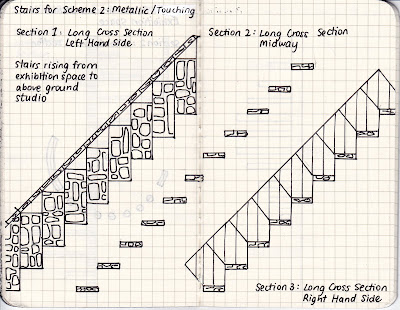 Stairs for Scheme 2: Metallic/Touching
Section 1: Long Cross Section
Left Hand Side
Stairs rising from
exhibition space to
above ground
studio
Section 2: Long Cross Section
Midway
Section 3: Long Cross Section
Right Hand Side